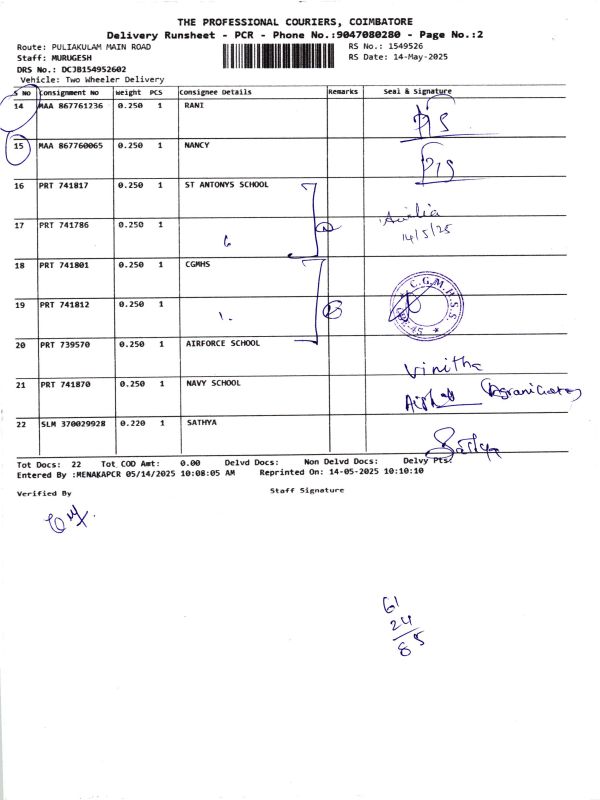 THE PROFESSIONAL COURIERS, COIMBATORE
Delivery Runsheet - PCR - Phone No.:9047080280 - Page No.:2
Route: PULIAKULAM MAIN ROAD RS No.: 1549526
Staff: MURUGESH RS Date: 14-May-2025
DRS No.: DCJB154952602
Vehicle: Two Wheeler Delivery
S No Consignment No Weight PCS Consignee Details Remarks Seal & Signature
14 MAA 867761236 0.250 1 RANI
15 MAA 867760065 0.250 1 NANCY
16 PRT 741817 0.250 1 ST ANTONYS SCHOOL
17 PRT 741786 0.250 1
14/5/25
18 PRT 741801 0.250 1 CGMHS
C.G.M.H.S.S.
19 PRT 741812 0.250 1
20 PRT 739570 0.250 1 AIRFORCE SCHOOL
Vinitha
21 PRT 741870 0.250 1 NAVY SCHOOL
22 SLM 370029928 0.220 1 SATHYA
Sathya
Tot Docs: 22 Tot COD Amt: 0.00 Delvd Docs: Non Delvd Docs: Delvy Pts:
Entered By :MENAKAPCR 05/14/2025 10:08:05 AM Reprinted On: 14-05-2025 10:10:10
Verified By Staff Signature
61
24
85